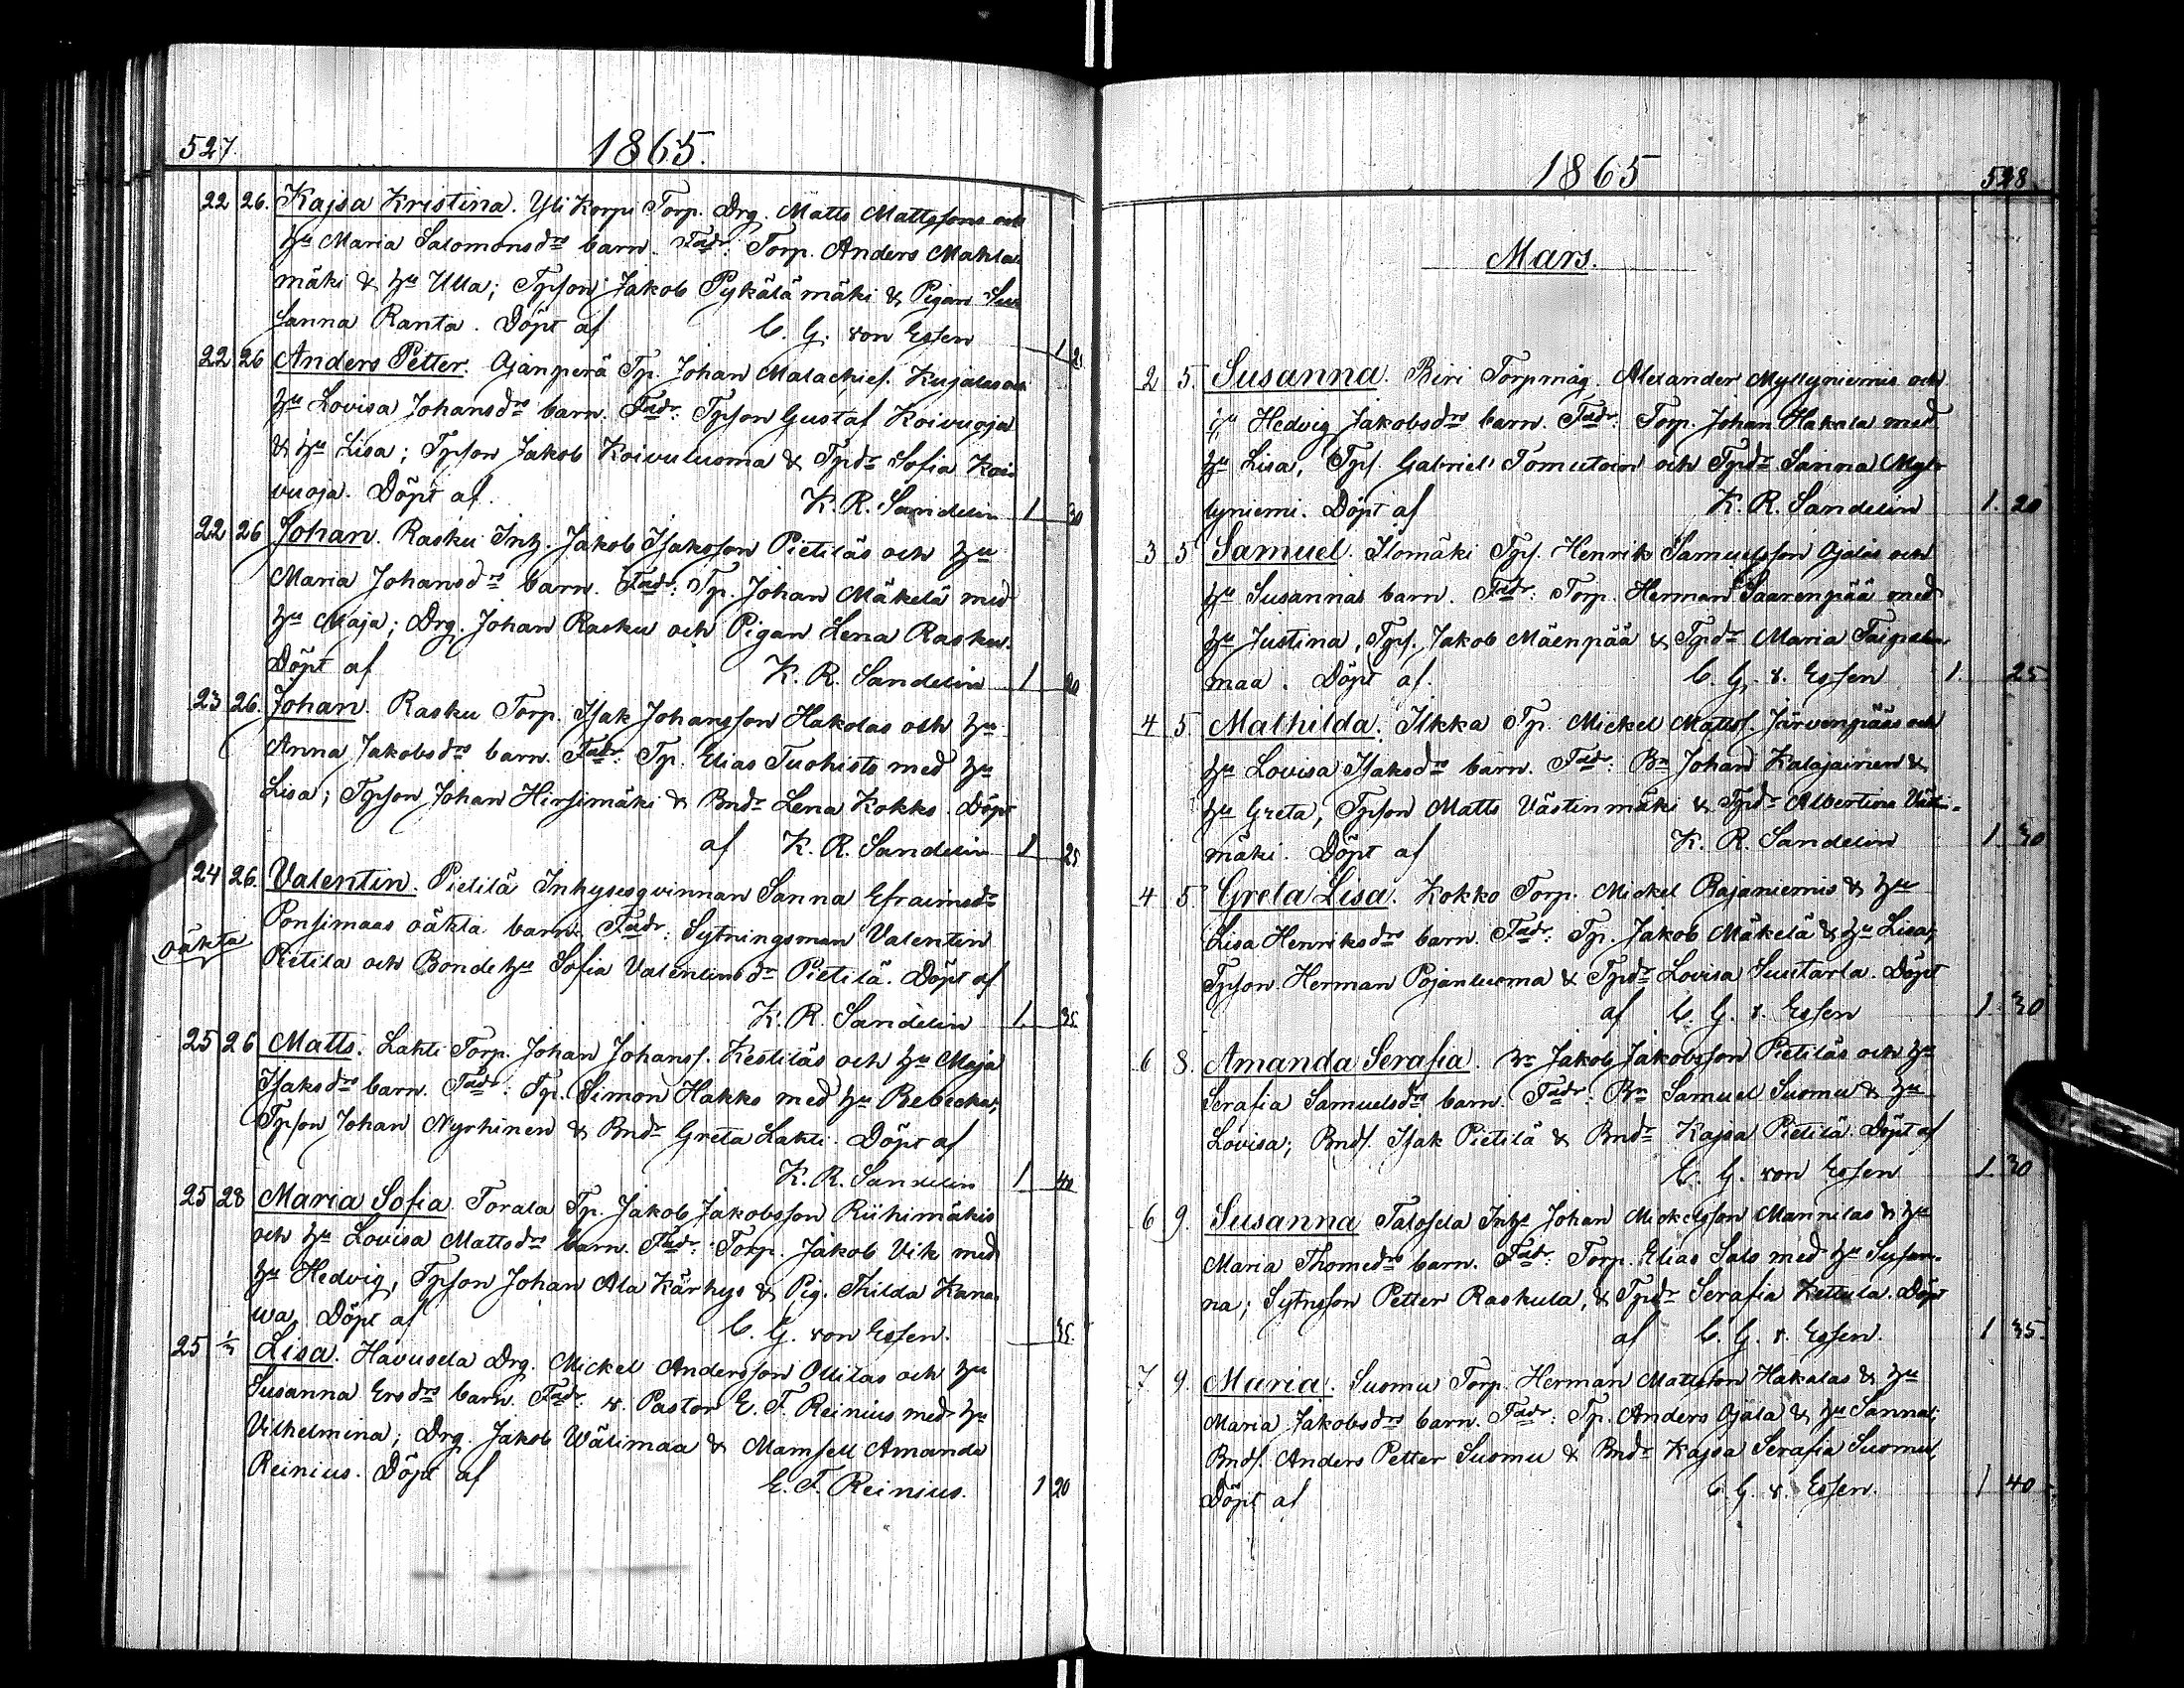 527.
1865.
22 26. Kajsa Kristina. Yli Korpi Torp. Drg. Matts Mattssons och
hu Maria Salomonsdrs barn. Fadr: Torp. Anders Mahla-
mäki & hu Ulla; Tpson Jakob Pykälämäki & Pigan Su-
sanna Ranta. Döpt af C. G. von Essen 1
22 26 Anders Petter. Ojanperä Tp. Johan Malachies. Kujalas och
hu Lovisa Johansdrs barn. Fadr: Tpson Gustaf Koivuoja
& hu Lisa; Tpson Jakob Koivuluoma & Tpdr Sofia Koi-
vuoja. Döpt af. K. R. Sandelin 1 30
22 26 Johan. Rasku Inh. Jakob Isaksson Pietiläs och hu
Maria Johansdrs barn. Fadr: Tp. Johan Mäkelä med
hu Maja; Drg. Johan Rasku och Pigan Lena Rasku.
Döpt af K. R. Sandelin 1 20
23 26. Johan. Rasku Torp. Isak Johansson Hakolas och hu
Anna Jakobsdrs barn. Fadr: Tp. Elias Tuohisto med hu
Lisa; Tpson Johan Hirsimäki & Bndr Lena Kokko. Döpt
af K. R. Sandelin 1 25
24 26. Valentin. Pietilä Inhysesqvinnan Sanna Efraimsdr
Ponsimaas oäkta barn. Fadr: Sytningsman Valentin
oäkta
Pietilä och Bonde hu Sofia Valentinsdr Pietilä. Döpt af
K. R. Sandelin 1 35
25 26 Matts. Lahti Torp. Johan Johanss. Kestiläs och hu Maja
Isaksdrs barn. Fadr: Tp. Simon Hakko med hu Rebecka;
Tpson Johan Nyrhinen & Bndr Greta Lahti. Döpt af
K. R. Sandelin 1 40
25 28 Maria Sofia. Torala Tp. Jakob Jakobsson Riihimäkis
och hu Lovisa Mattsdrs barn. Fadr: Torp. Jakob Vik med
hu Hedvig, Tpson Johan Ala Kärhys & Pig. Thilda Kana-
wa. Döpt af C. G. von Essen. 35.
25 1/3 Lisa. Havusela Drg. Mickel Andersson Ollilas och hu
Susanna Ersdrs barn. Fadr: v. Pastor E. F. Reinius med hu
Vilhelmina; Drg. Jakob Wälimaa & Mamsell Amanda
Reinius. Döpt af E. F. Reinius. 1 20
1865
528.
Mars.
2 5. Susanna. Biri Torpmåg. Alexander Myllyniemis och
hu Hedvig Jakobsdrs barn. Fadr: Torp. Johan Hakala med
hu Lisa, Tps. Gabriel och Tpdr Sanna Myl-
lyniemi. Döpt af K. R. Sandelin 1. 20
3 5 Samuel. Ilomäki Tps. Henrik Samuelsson Ojalas och
hu Susannas barn. Fadr: Torp. Herman Saarenpää med
hu Justina, Tps. Jakob Mäenpää & Tpdr Maria Taipalen-
maa. Döpt af. C. G. v. Essen 1. 25
4 5. Mathilda. Ilkka Tp. Mickel Mattss. Järvenpääs och
hu Lovisa Isaksdrs barn. Fadr: Bn Johan Kalajainen &
hu Greta, Tpson Matts Västinmäki & Tpdr Albertina Västin-
mäki. Döpt af K. R. Sandelin 1. 30
4 5. Greta Lisa. Kokko Torp. Mickel Rajaniemis & hu
Lisa Henriksdrs barn. Fadr: Tp. Jakob Mäkelä & hu Lisa;
Tpson Herman Pojanluoma & Tpdr Lovisa Suutarla. Döpt
af C. G. v. Essen 1. 30
6 8. Amanda Serafia. Bn Jakob Jakobsson Pietiläs och hu
Serafia Samuelsdrs barn. Fadr: Bn Samuel Suomu & hu
Lovisa; Bnds. Isak Pietilä & Bndr Kajsa Pietilä. Döpt af
C. G. von Essen 1. 30
6 9. Susanna Talosela Inhs Johan Mickelsson Mannilas & hu
Maria Thomedrs barn. Fadr: Torp. Elias Salo med hu Susan-
na; Sytngson Petter Raskula, & Tpdr Serafia Kettula. Döpt
af C. G. v. Essen. 1 35
7 9. Maria. Suomu Torp. Herman Mattsson Hakalas & hu
Maria Jakobsdrs barn. Fadr: Tp. Anders Ojala & hu Sanna;
Bnds. Anders Petter Suomu & Bndr Kajsa Serafia Suomu,
Döpt af C. G. v. Essen. 1 40